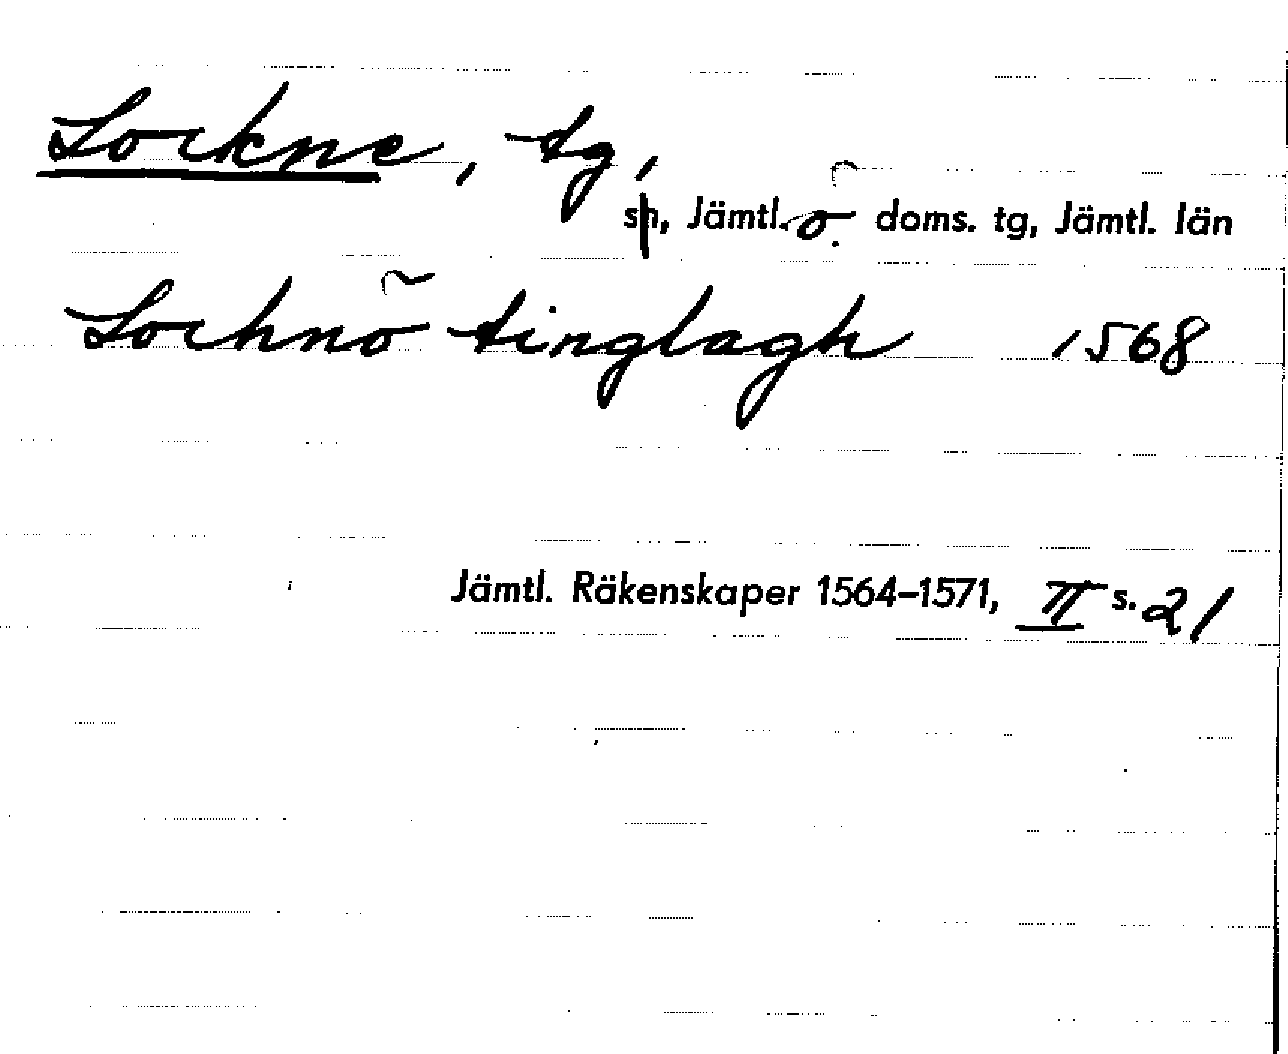 Lockne, tg,
sh, Jämtl. ö. doms. tg, Jämtl. län
Lochnö tinglagh 1568
Jämtl. Räkenskaper 1564–1571, II s. 21